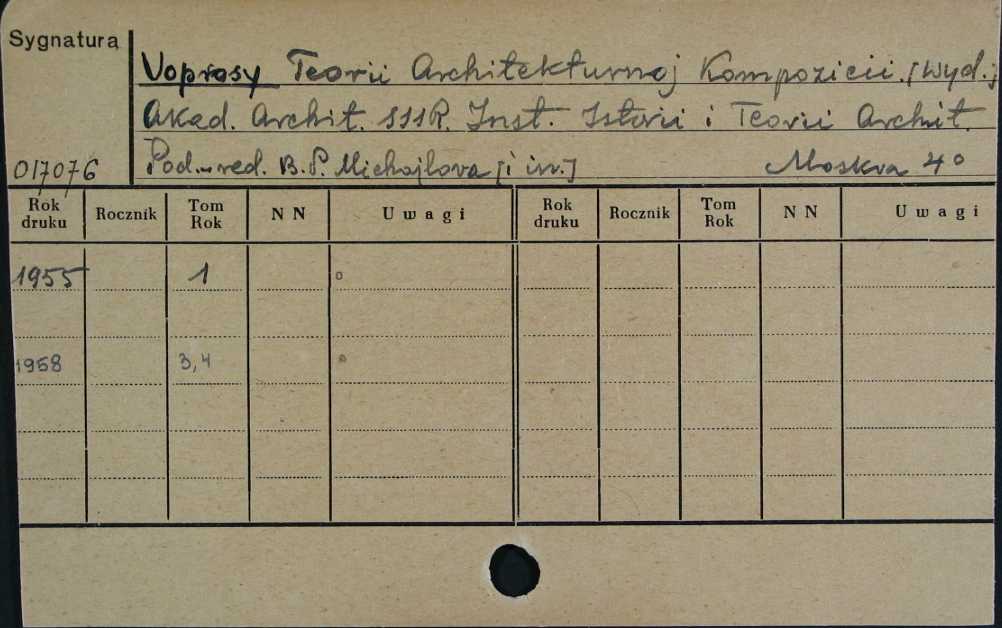 Sygnatura
Voprosy Teorii Architekturnoj Kompozicii. [Wyd.:
Akad. Archit. SSSR. Inst. Istorii i Teorii Archit.
017076 Pod. red. B. P. Michajlova [i in.] Moskva 4°
Rok druku Rocznik Tom Rok NN Uwagi Rok druku Rocznik Tom Rok NN Uwagi
1955 1
1958 3,4